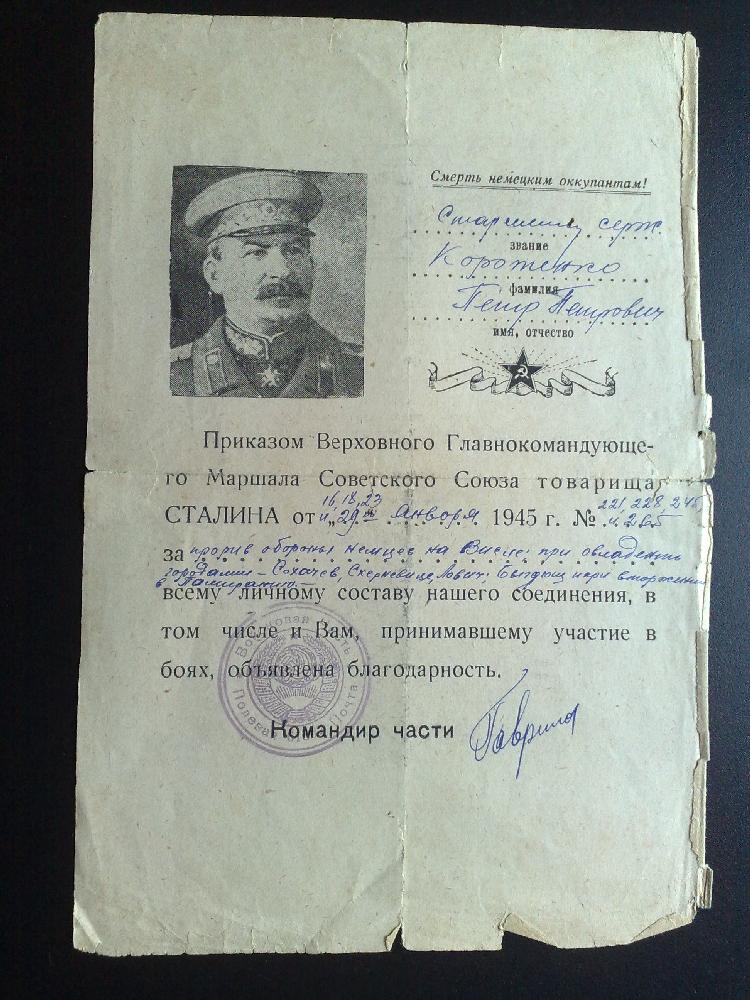 Смерть немецким оккупантам!
Старшему серж.
звание
Коротенко
фамилия
Петр Петрович
имя, отчество
Приказом Верховного Главнокомандующе-
го Маршала Советского Союза товарища
16, 18, 23 221, 228, 245
СТАЛИНА от и „29" января 1945 г. № и 265
за прорыв обороны немцев на Висле: при овладении
городами – Сохачев, Скерневице, Лович; Быдгощ и при вторжении
в Померанию –
всему личному составу нашего соединения, в
том числе и Вам, принимавшему участие в
боях, объявлена благодарность.
Войсковая часть
Полевая Почта
Командир части